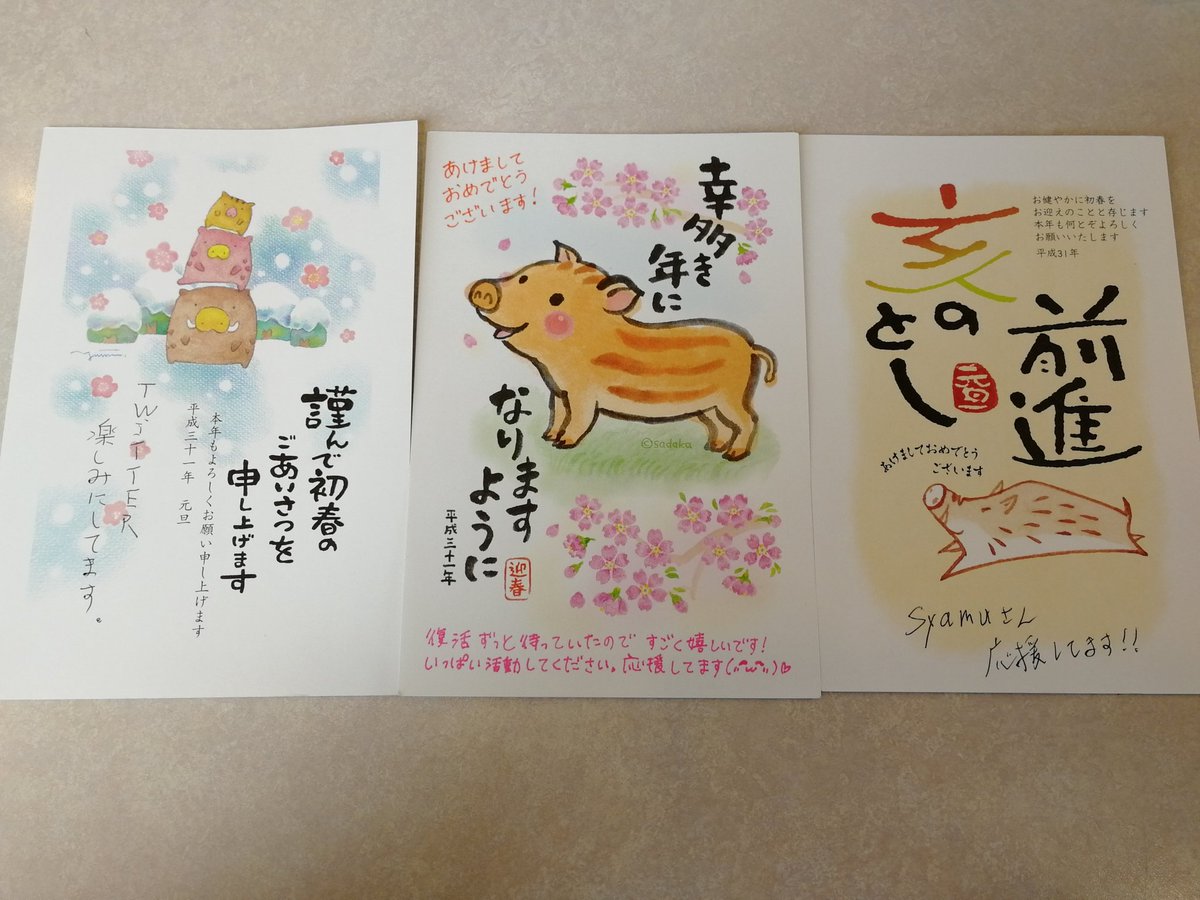 謹んで初春の
ごあいさつを
申し上げます
本年もよろしくお願い申し上げます
平成三十一年 元旦
TWiTTER
楽しみにしてます。
あけまして
おめでとう
ございます!
幸多き
年に
なります
ように
平成三十一年
迎春
©sadaka
復活ずっと待っていたので すごく嬉しいです!
いっぱい活動してください。応援してます(〃ω〃)♡
お健やかに初春を
お迎えのことと存じます
本年も何とぞよろしく
お願いいたします
平成31年
前進
亥の
とし
元旦
あけましておめでとう
ございます
Syamuさん
応援してます!!